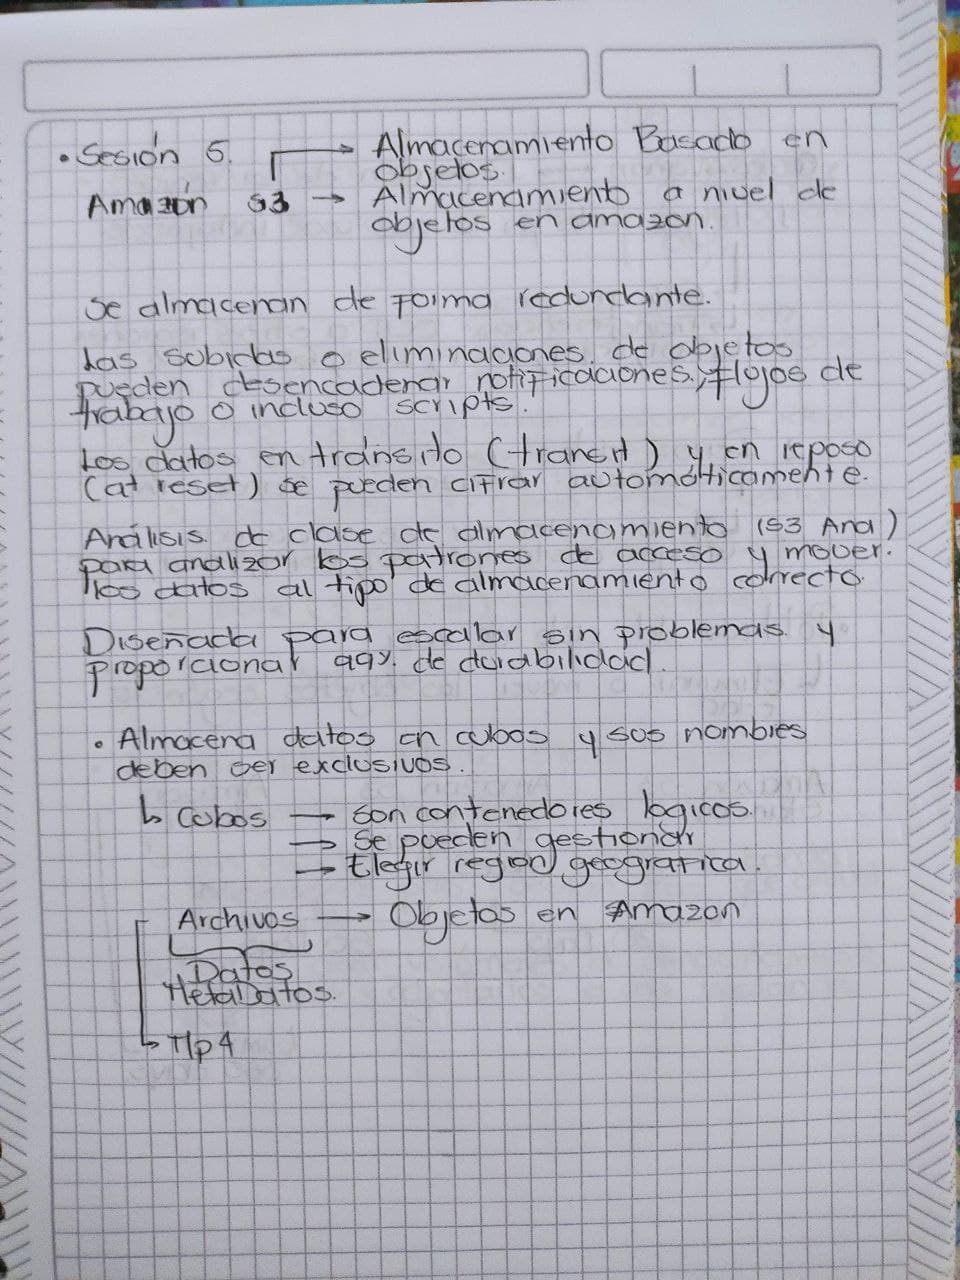 • Sesión 5. → Almacenamiento Basado en
objetos.
Amazón S3 → Almacenamiento a nivel de
objetos en amazon.
Se almacenan de forma redundante.
Las subidas o eliminaciones. de objetos
pueden desencadenar notificaciones, flujos de
trabajo o incluso scripts.
Los datos en tránsito (transit) y en reposo
(at reset) se pueden cifrar automáticamente.
Análisis de clase de almacenamiento (S3 Ana)
para analizar los patrones de acceso y mover.
los datos al tipo de almacenamiento correcto.
Diseñada para escalar sin problemas y
proporcionar 99% de durabilidad.
• Almacena datos en cubos y sus nombres
deben ser exclusivos.
↳ Cubos → son contenedores logicos.
→ Se pueden gestionar
→ Elegir region geografica.
Archivos → Objetos en Amazon
Datos
MetaDatos.
↳ Mp4